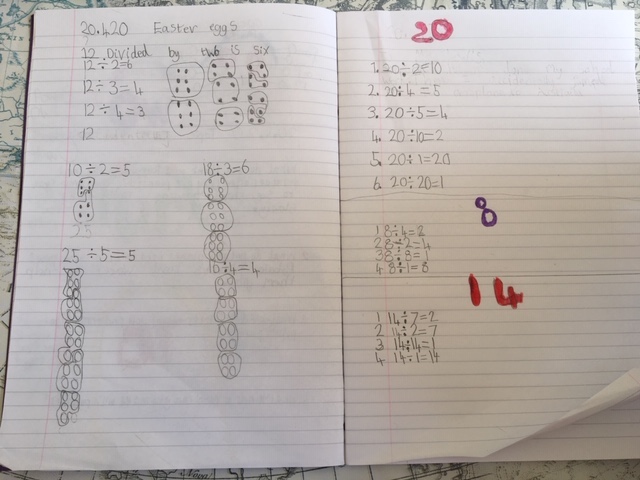 20.4.20 Easter eggs
12 Divided by two is six
12÷2=6
12÷3=4
12÷4=3
12
10÷2=5
18÷3=6
25
25÷5=5
16÷4=4
20
1. 20÷2=10
2. 20÷4=5
3. 20÷5=4
4. 20÷10=2
5. 20÷1=20
6. 20÷20=1
8
1 8÷4=2
2 8÷2=4
3 8÷8=1
4 8÷1=8
14
1 14÷7=2
2 14÷2=7
3 14÷14=1
4 14÷1=14